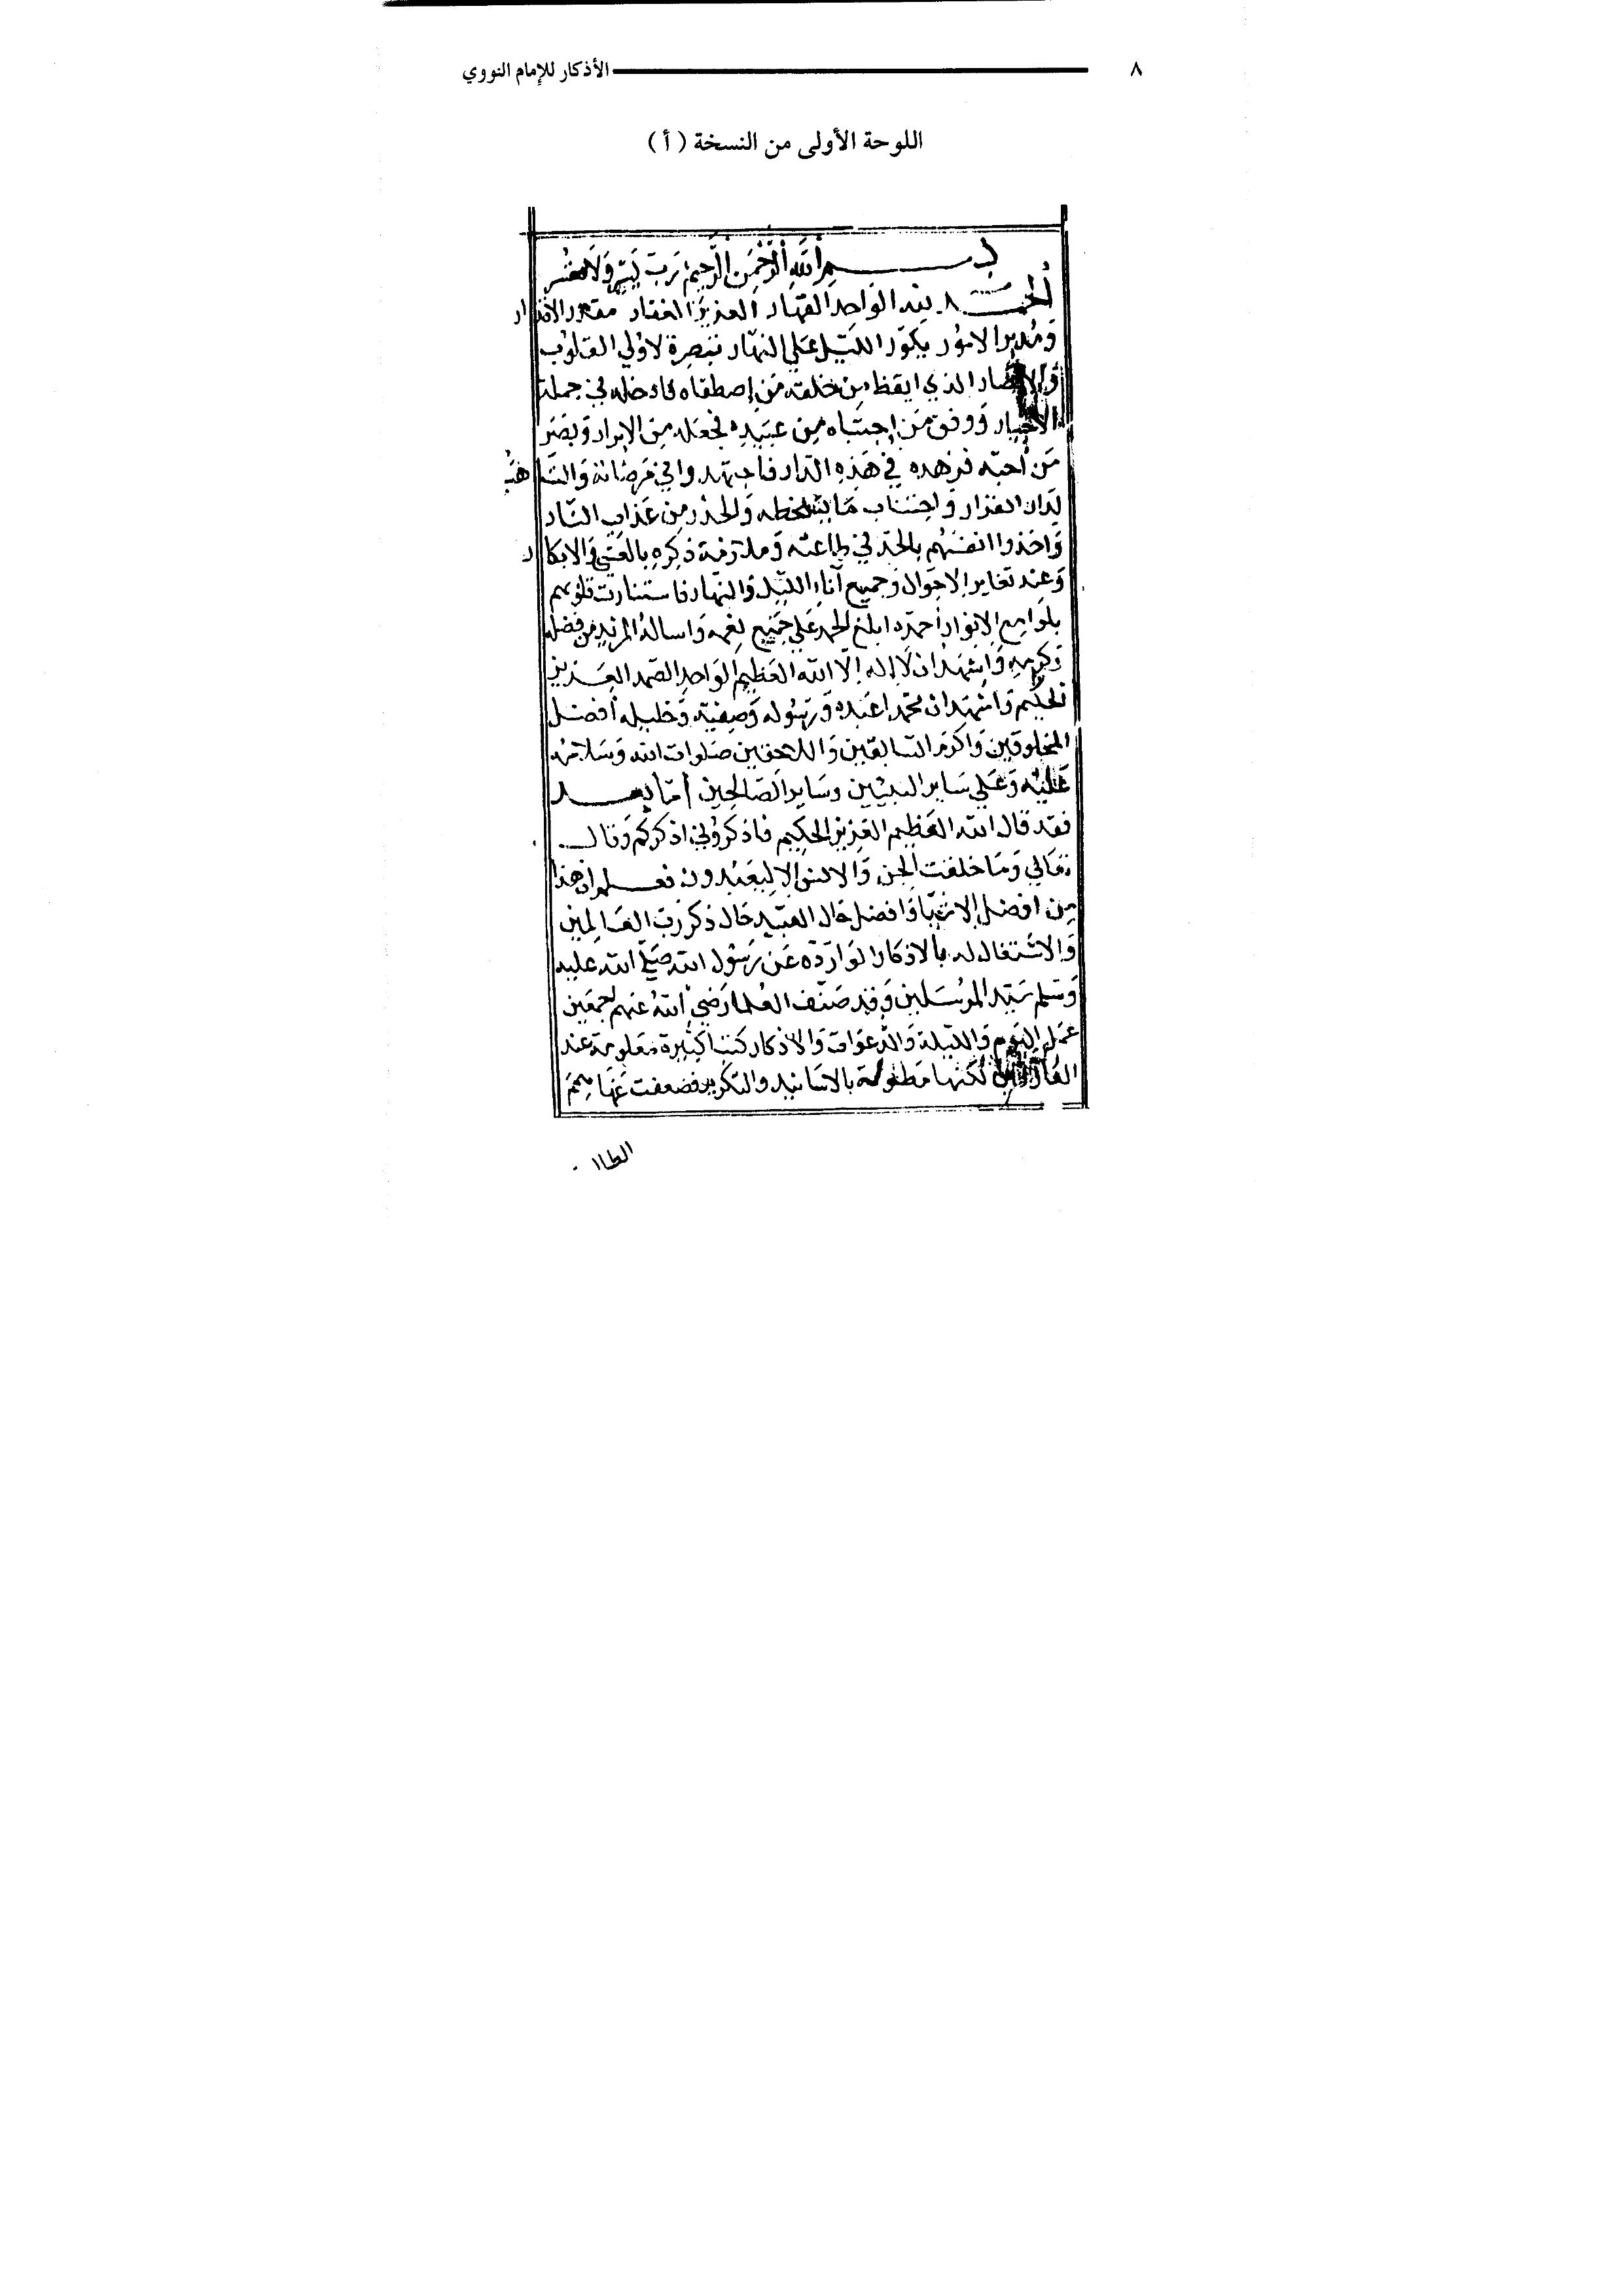 ٨ الأذكار للإمام النووي
اللوحة الأولى من النسخة (أ)
بسم الله الرحمن الرحيم رب يسر ولا تعسر
الحمد لله الواحد القهار العزيز الغفار مقدر الاقدار
ومدبر الامور يكور الليل على النهار تبصرة لاولي القلوب
والابصار الذي ايقظ من خلقه من إصطفاه فادخله في جملة
الاخيار ووفق من إجتباه من عبيده فجعله من الابرار وبصر
من أحبه فزهده في هذه الدار فاجتهدوا في مرضاته والتاهب
لدار القرار واجتناب ما يسخطه والحذر من عذاب النار
واخذوا انفسهم بالجد في طاعته وملازمة ذكره بالعشي والابكار
وعند تغاير الاحوال وجميع آناء الليل والنهار فاستنارت قلوبهم
بلوامع الانوار أحمده ابلغ الحمد على جميع نعمه واساله المزيد من فضله
وكرمه واشهد ان لا إله إلا الله العظيم الواحد الصمد العزيز
الحكيم واشهد ان محمدا عبده ورسوله وصفيه وخليله أفضل
المخلوقين واكرم السابقين واللاحقين صلوات الله وسلامه
عليه وعلى ساير النبيين وساير الصالحين أما بعد
فقد قال الله العظيم العزيز الحكيم فاذكروني اذكركم وقال
تعالي وما خلقت الجن والانس إلا ليعبدون فعلم ان هذا
من افضل الاشيا وافضل حال العبيد حال ذكر رب العالمين
والاشتغال له بالاذكار الواردة عن رسول الله صلى الله عليه
وسلم سيد المرسلين وقد صنف العلما رضي الله عنهم اجمعين
عمل اليوم والليلة والدعوات والاذكار كتبا كثيرة معلومة عند
العارفين لكنها مطولة بالاسانيد والتكرير فضعفت عنها همم